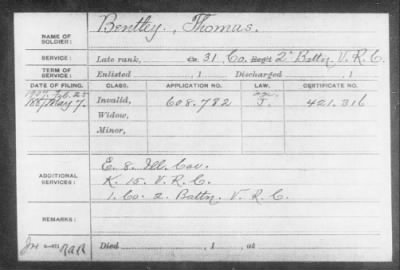 NAME OF SOLDIER: Bentley, Thomas.
SERVICE: Late rank, Co. 31 Co. Reg't 2" Battn V. R. C.
TERM OF SERVICE: Enlisted , 1 Discharged , 1
DATE OF FILING. CLASS. APPLICATION NO. LAW. CERTIFICATE NO.
1887 May 7. Invalid, 608.782 J. 421.316
Widow,
Minor,
ADDITIONAL SERVICES: E. 8. Ill. Cav.
K. 15. V. R. C.
1. Co. 2. Battn V. R. C.
REMARKS:
Died , 1 , at